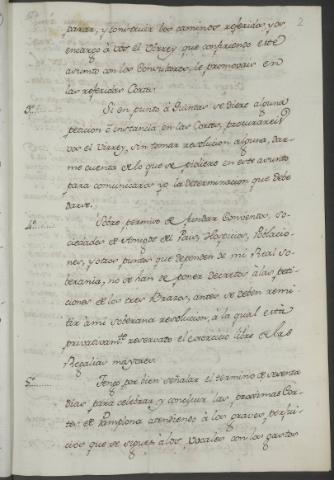 2
parar, y construir los caminos referidos, y os
encargo à vos el Virrey que confiriendo este
asunto con los Consultores, le promovais en
las referidas Cortes.
3º. Si en punto à Plantas se diere alguna
peticion ò instancia en las Cortes, procurareis
vos el Virrey, sin tomar resolucion alguna, dar-
me cuenta de lo que se pidiere en este asunto
para comunicaros yo la determinacion que debe
darse.
4º. Sobre permiso de fundar Conventos, So-
ciedades de Amigos del Pais, Hospicios, Poblacio-
nes, y otros puntos que dependen de mi Real So-
berania, no se han de poner Decretos à las peti-
ciones de los tres Brazos, antes se deben remi-
tir à mi Soberana resolucion, à la qual està
privativam.te reservado el exercicio libre de las
Regalias mayores.
5º. Tengo por bien señalar el termino de
dias para celebrar, y concluir las proximas Cor-
tes de Pamplona atendiendo à los graves perjui-
cios que se siguen à los Vocales con los gastos